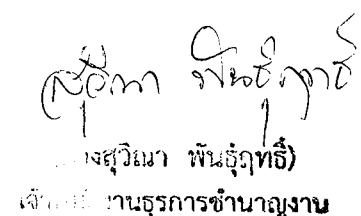 สุวิณา พันธุ์ฤทธิ์
สุวิณา พันธุ์ฤทธิ์)
งานธุรการชำนาญงาน